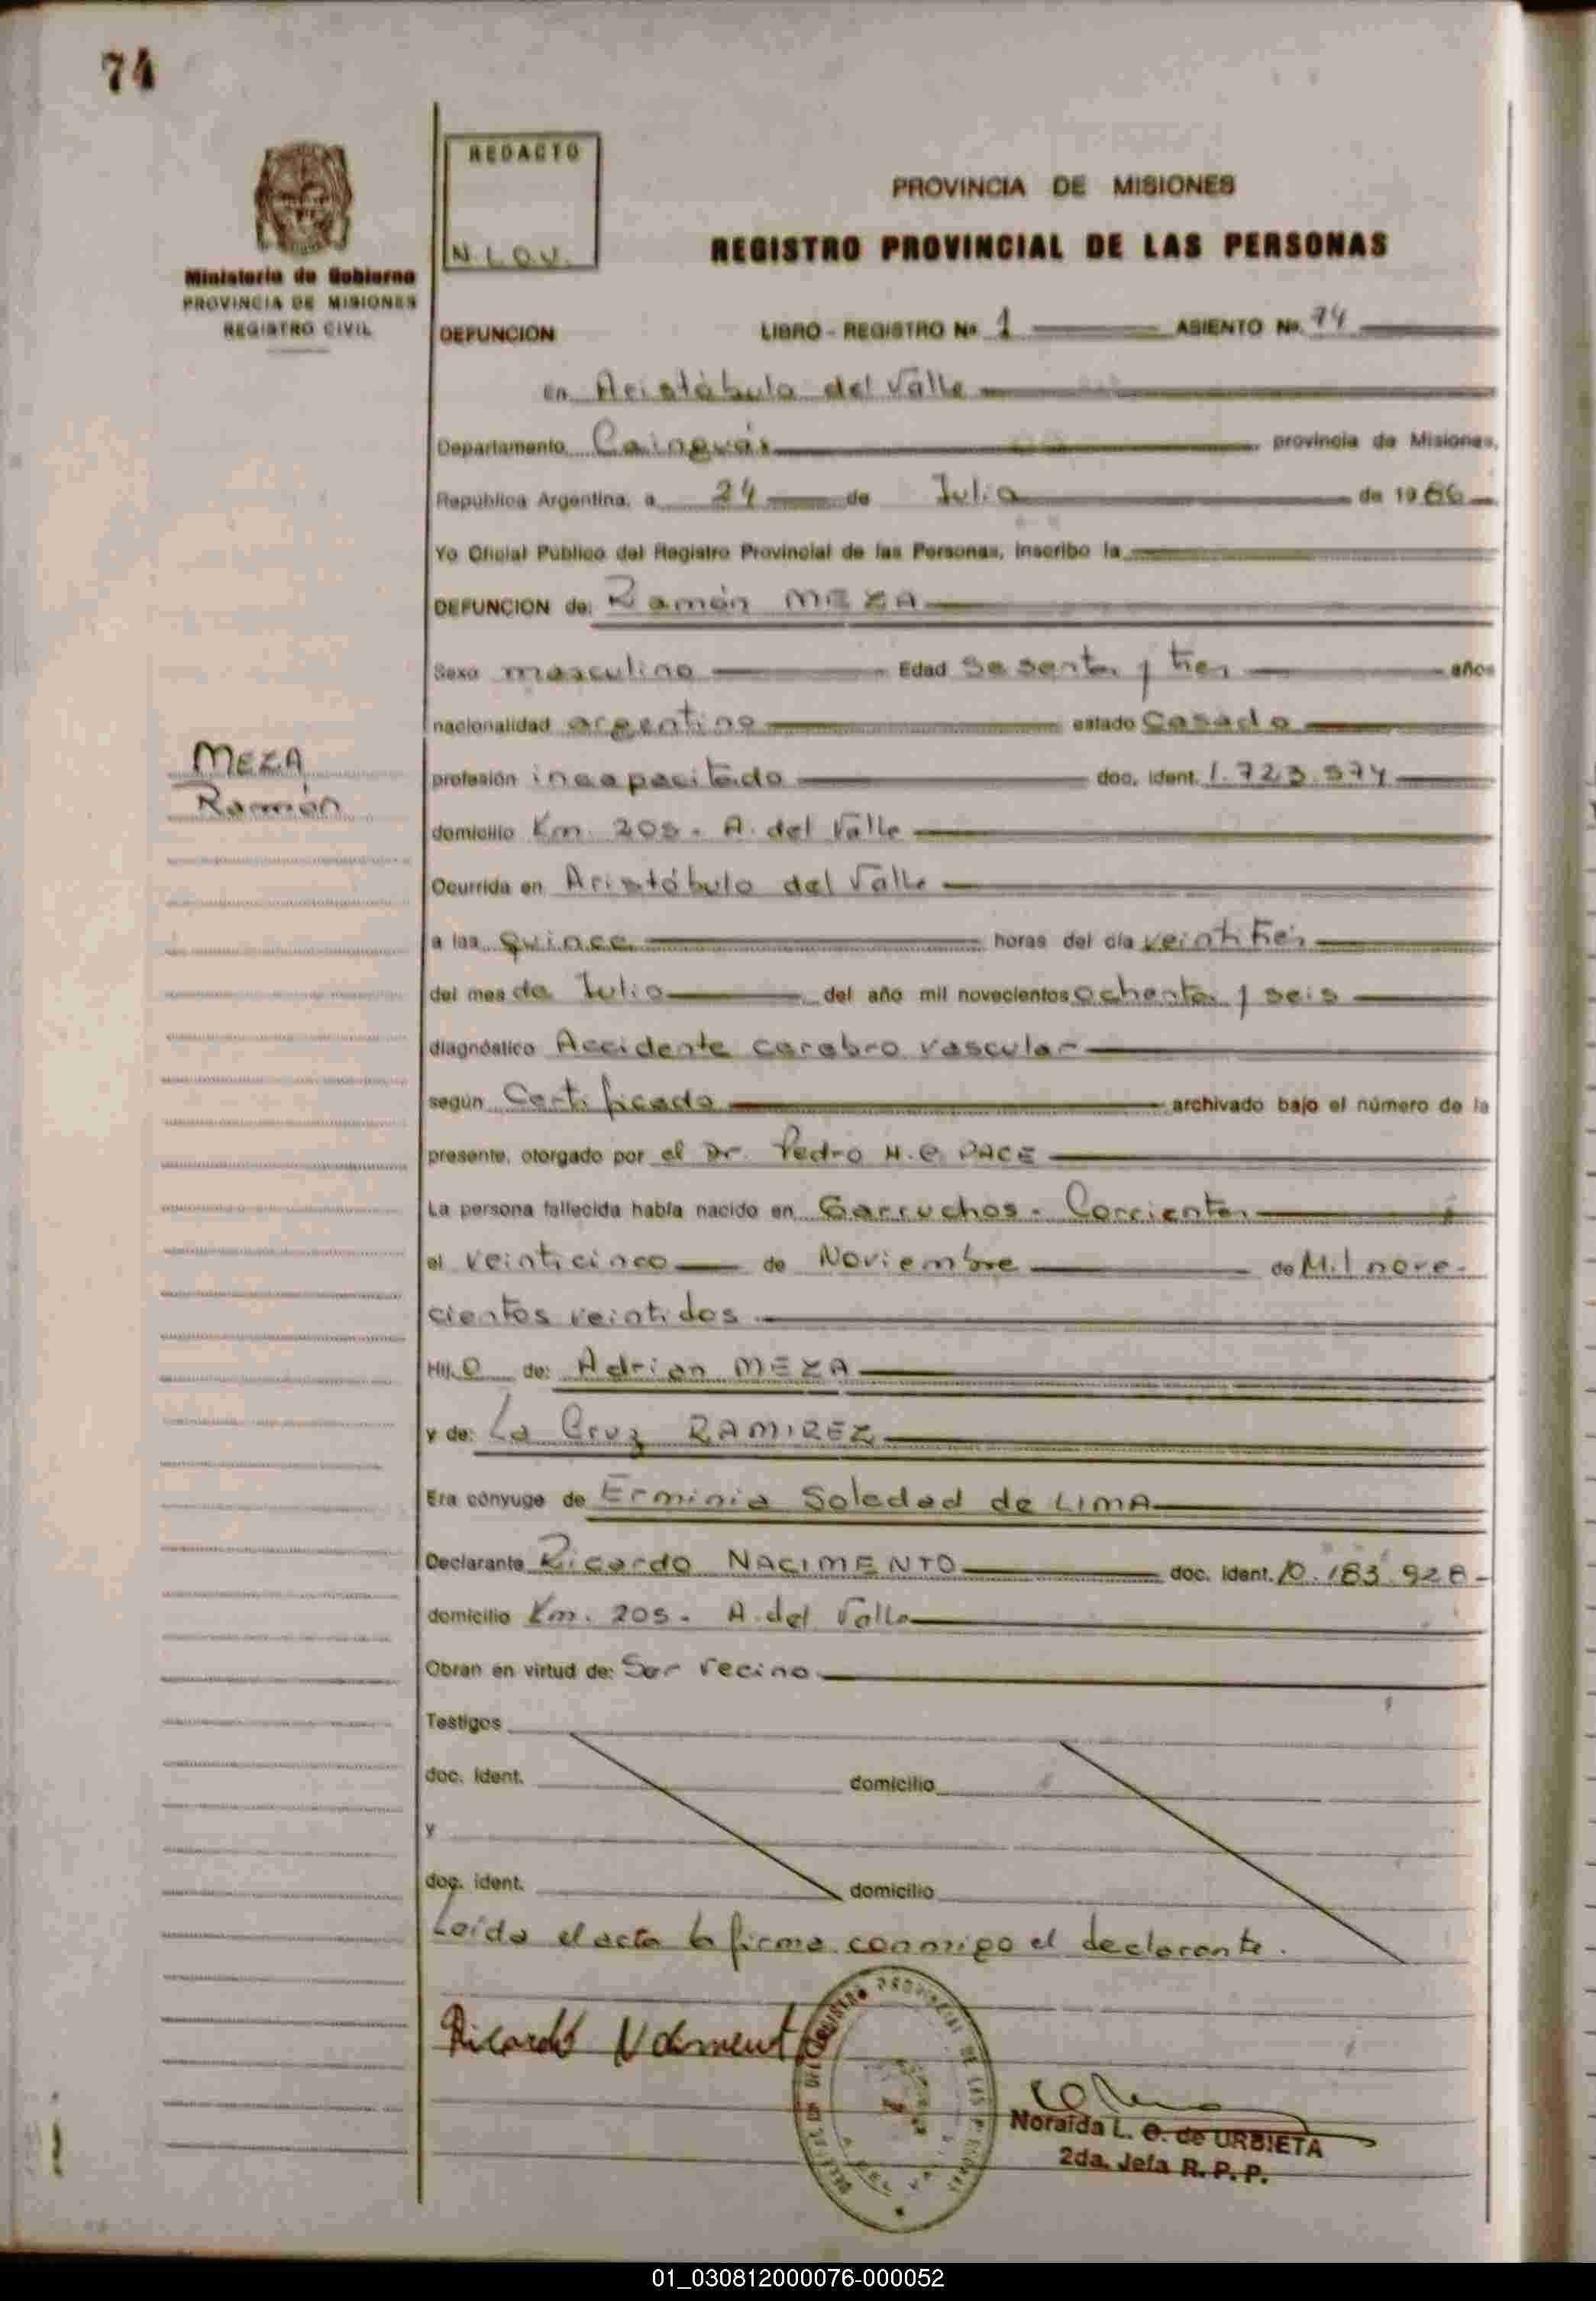 74
REDACTO
N.L.O.U.
Ministerio de Gobierno
PROVINCIA DE MISIONES
REGISTRO CIVIL
PROVINCIA DE MISIONES
REGISTRO PROVINCIAL DE LAS PERSONAS
DEFUNCION LIBRO - REGISTRO Nº 1 ASIENTO Nº 74
en Aristóbulo del Valle
Departamento Cainguás provincia de Misiones,
República Argentina, a 24 de Julio de 1986
Yo Oficial Público del Registro Provincial de las Personas, inscribo la
DEFUNCION de: Ramón MEZA
Sexo masculino Edad Sesenta y tres años
nacionalidad argentino estado Casado
MEZA
Ramón
profesión incapacitado doc. ident. 1.723.574
domicilio Km. 205 - A. del Valle
Ocurrida en Aristóbulo del Valle
a las quince horas del día veintitrés
del mes de Julio del año mil novecientos ochenta y seis
diagnóstico Accidente cerebro vascular
según Certificado archivado bajo el número de la
presente, otorgado por el Dr. Pedro H.C. PACE
La persona fallecida había nacido en Garruchos - Corrientes
el veinticinco de Noviembre de Mil nove-
cientos veintidos
Hijo de: Adrian MEZA
y de: La Cruz RAMIREZ
Era cónyuge de Erminia Soledad de LIMA
Declarante Ricardo NACIMENTO doc. ident. 10.183.928
domicilio Km. 205 - A. del Valle
Obran en virtud de: Ser vecino
Testigos
doc. ident. domicilio
y
doc. ident. domicilio
Leída el acta la firma conmigo el declarante.
Ricardo
REGISTRO PROVINCIAL DE LAS
Noraída L. O. de URBIETA
2da. Jefa R. P. P.
01_030812000076-000052